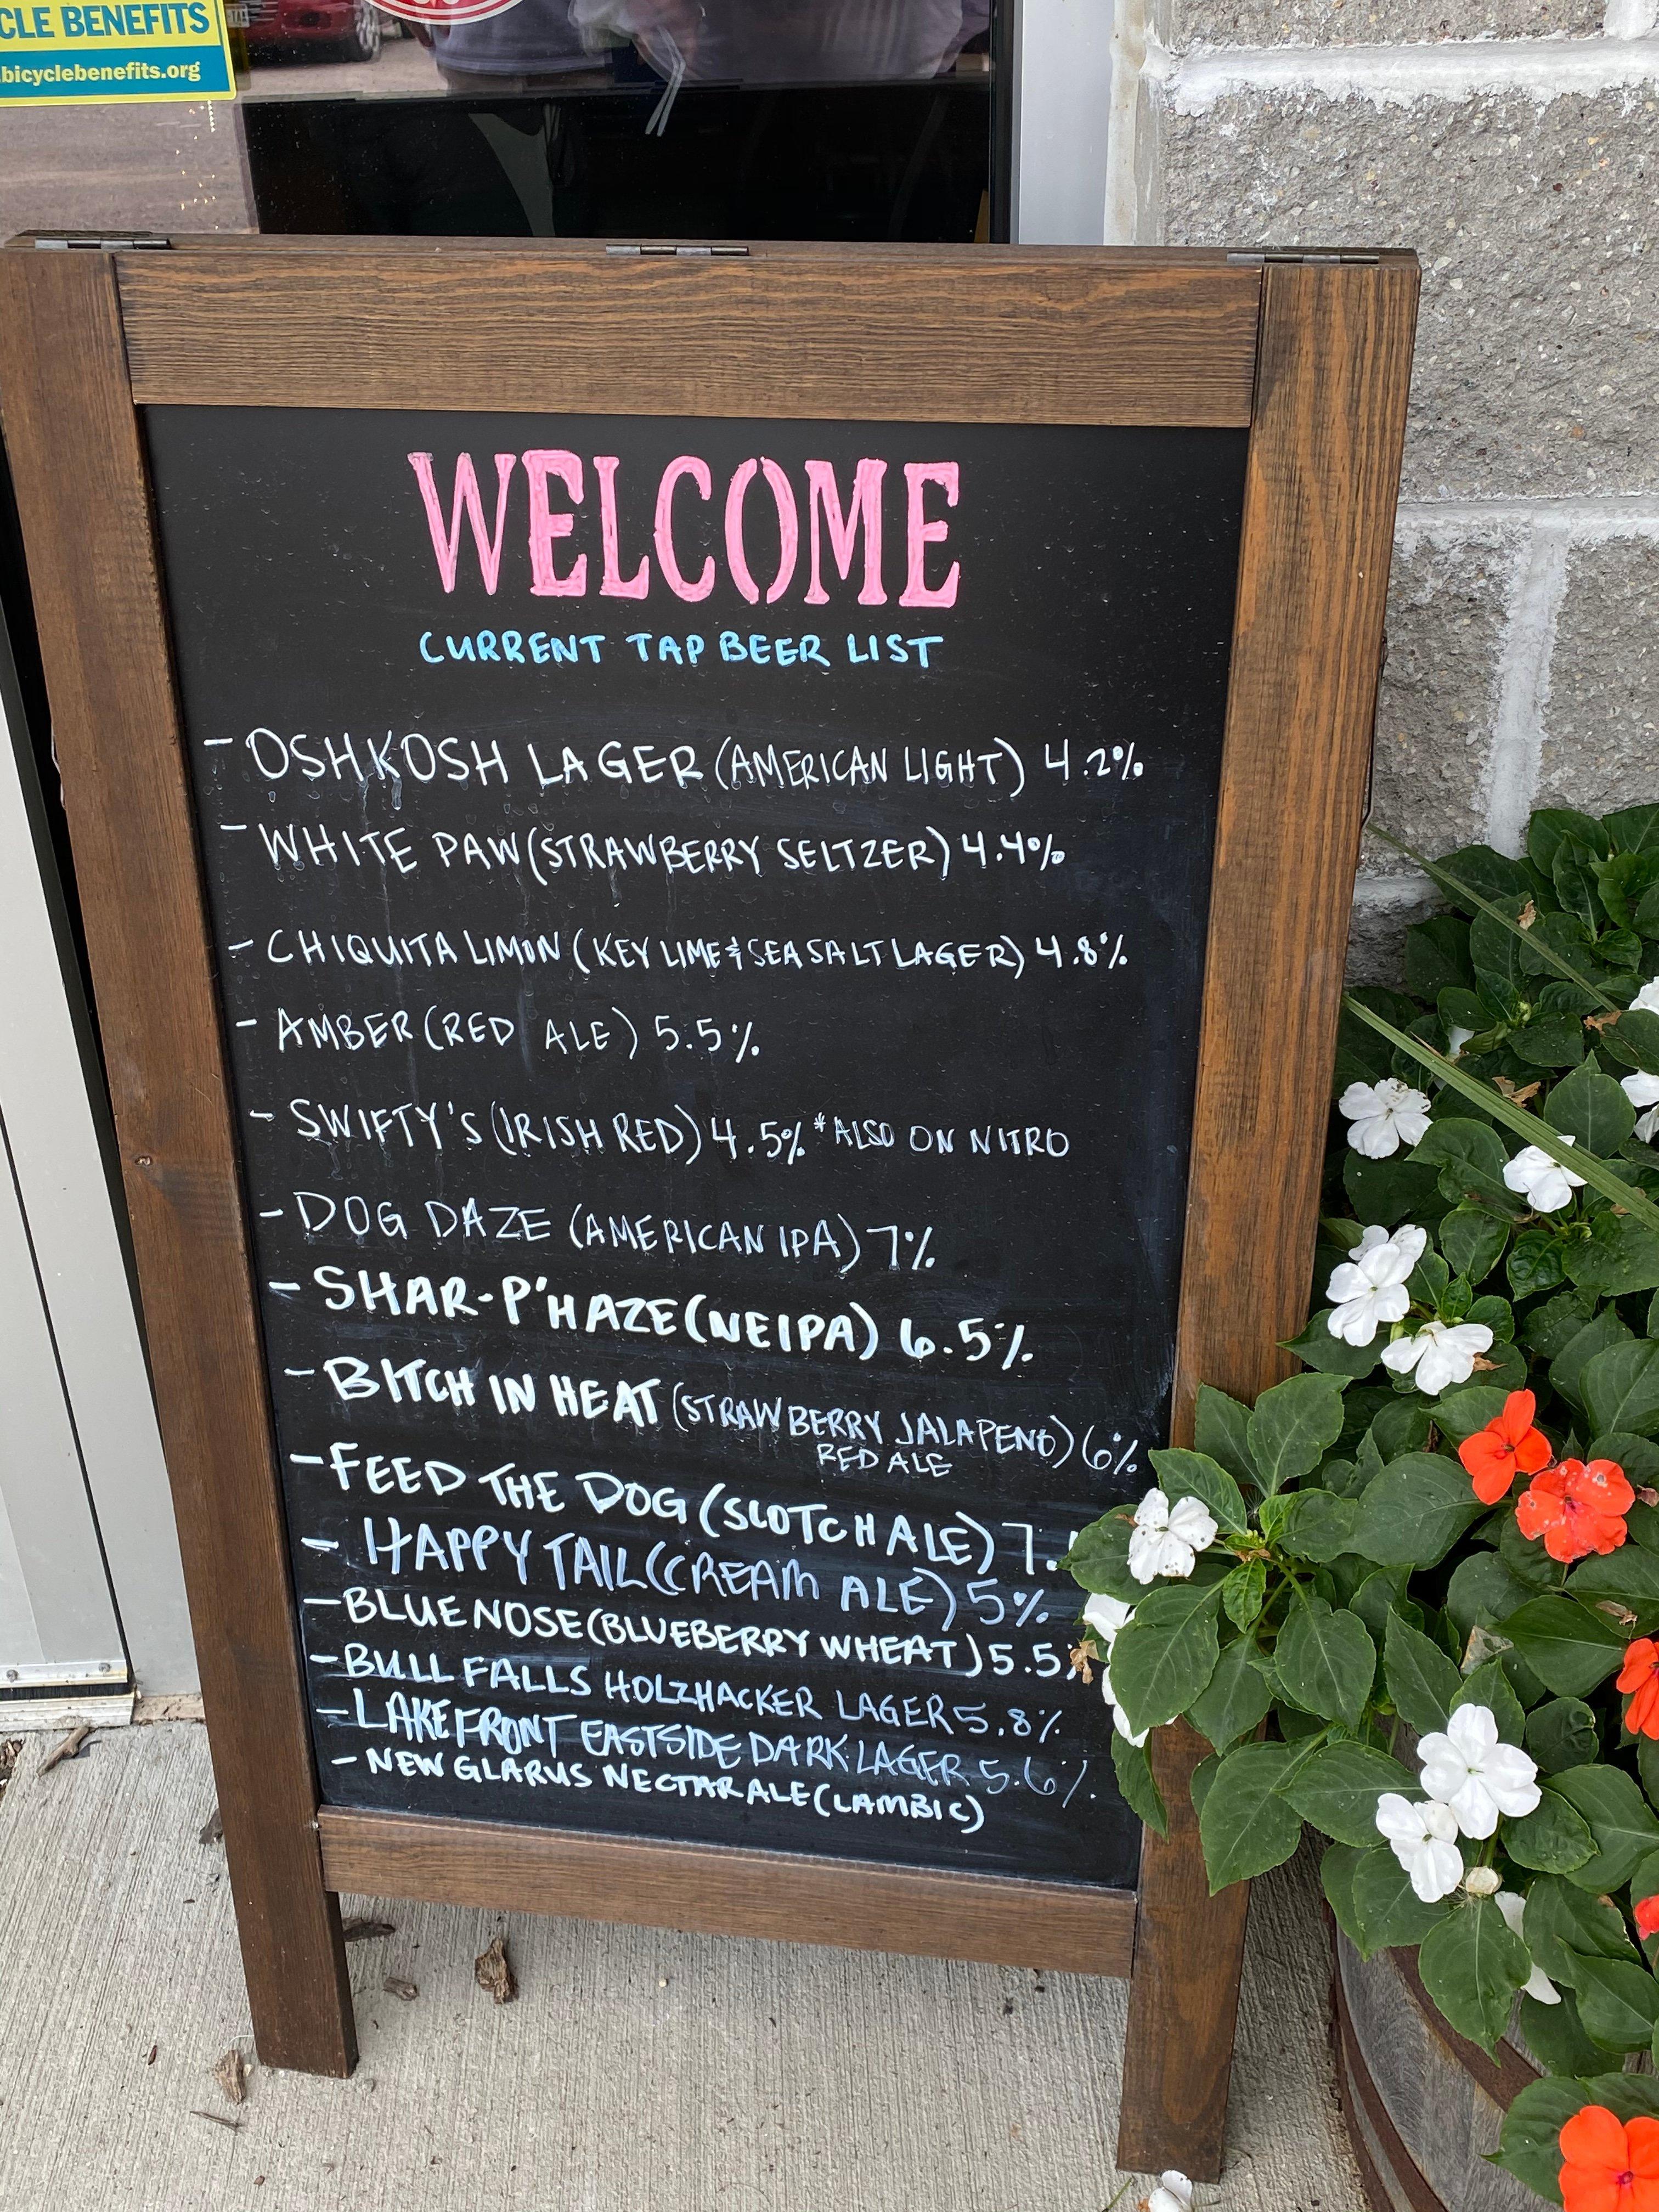 CLE BENEFITS
bicyclebenefits.org
WELCOME
CURRENT TAP BEER LIST
- OSHKOSH LAGER (AMERICAN LIGHT) 4.2%
- WHITE PAW (STRAWBERRY SELTZER) 4.4%
- CHIQUITA LIMON (KEY LIME & SEA SALT LAGER) 4.8%
- AMBER (RED ALE) 5.5%
- SWIFTY'S (IRISH RED) 4.5% *ALSO ON NITRO
- DOG DAZE (AMERICAN IPA) 7%
- SHAR-P'HAZE (NEIPA) 6.5%
- BITCH IN HEAT (STRAWBERRY JALAPENO) 6%
RED ALE
- FEED THE DOG (SCOTCH ALE) 7.
- HAPPY TAIL (CREAM ALE) 5%
- BLUE NOSE (BLUEBERRY WHEAT) 5.5
- BULL FALLS HOLZHACKER LAGER 5.8%
- LAKEFRONT EASTSIDE DARK LAGER 5.6%
- NEW GLARUS NECTAR ALE (LAMBIC)